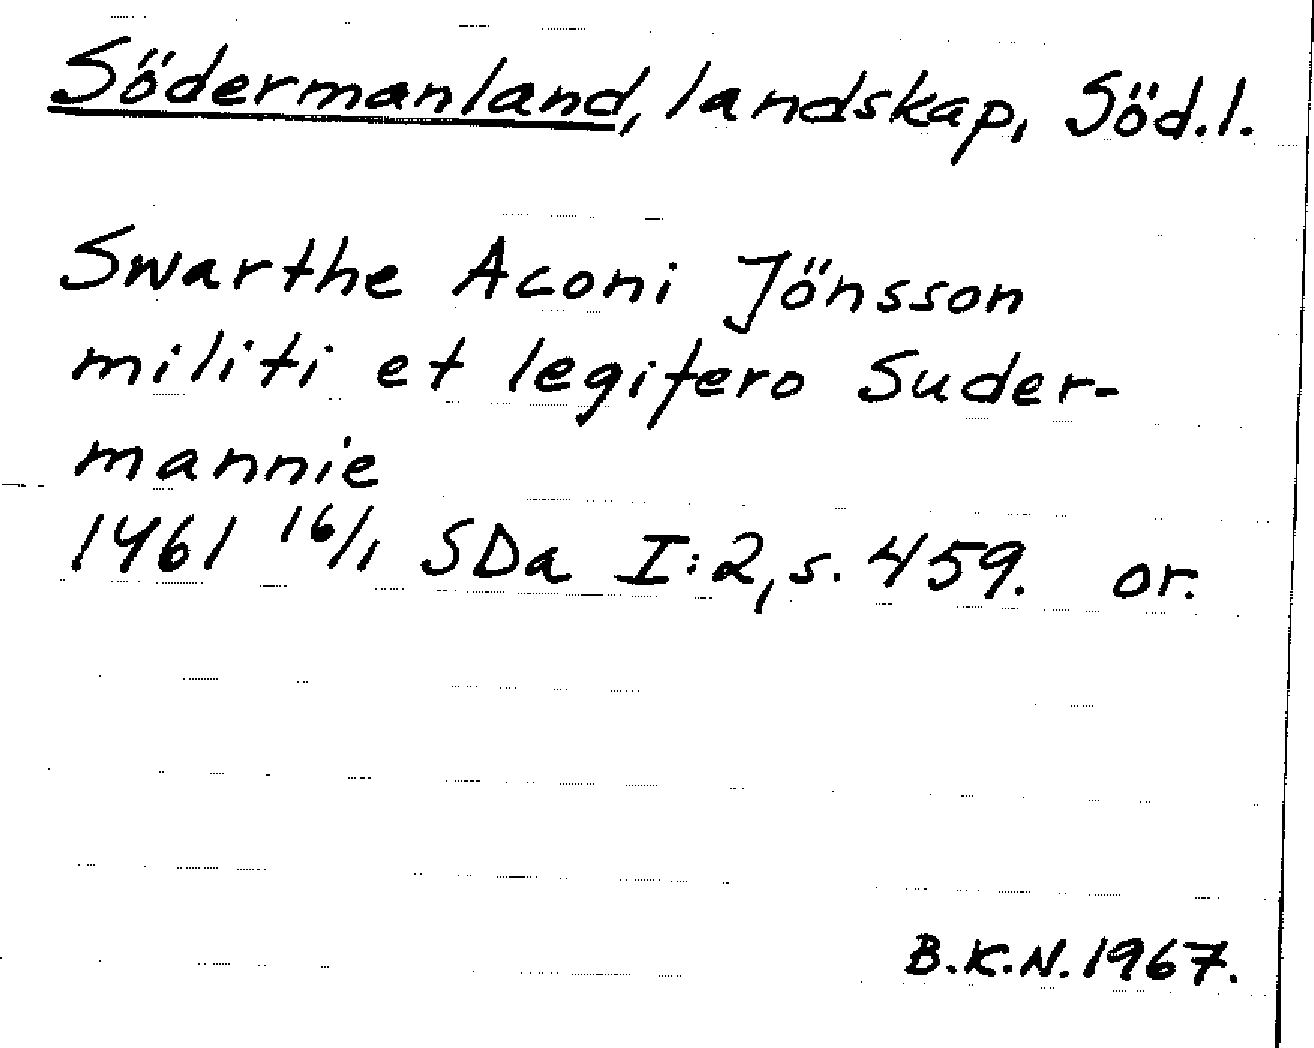 Södermanland, landskap, Söd.l.
Swarthe Aconi Jönsson
militi et legifero Suder-
mannie
1461 16/1 SDa I:2, s. 459. or.
B.K.N. 1967.